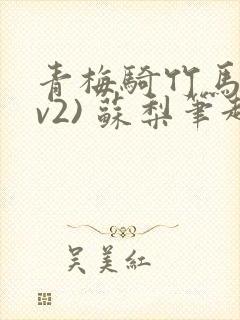 青梅騎竹馬
v2) 蘇梨筆趣
吴美紅